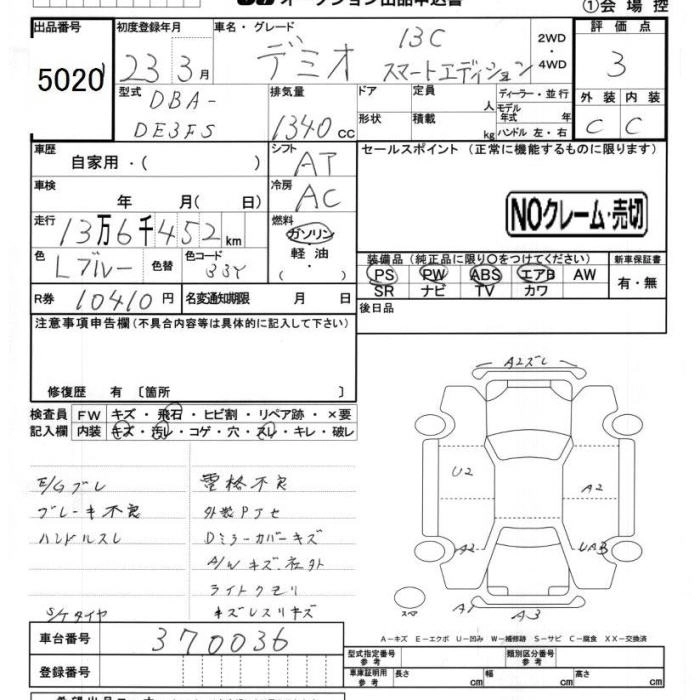 オークション出品申込書
①会場控
出品番号 初度登録年月 車名・グレード 評価点
5020 23 3月 デミオ 13C スマートエディション 2WD・4WD 3
型式 排気量 ドア 定員 人 ディーラー・並行 外装 内装
DBA-DE3FS 1340cc 形状 積載 kg モデル年式 年 ハンドル 左・右 C C
車歴 シフト セールスポイント(正常に機能するものに限ります)
自家用・( ) AT
車検 冷房
年 月( 日) AC
NOクレーム・売切
走行 13万6千452km 燃料 ガソリン 軽油 ・( )
色 Lブルー 色替 色コード 33Y
装備品(純正品に限り○をつけてください) 新車保証書
PS PW ABS エアB AW 有・無
SR ナビ TV カワ
R券 10410円 名変通知期限 月 日
後日品
注意事項申告欄(不具合内容等は具体的に記入して下さい)
修復歴 有 [箇所 ]
検査員 FW キズ・飛石・ヒビ割・リペア跡・×要
記入欄 内装 キズ・汚レ・コゲ・穴・スレ・キレ・破レ
A2ズレ
U2 A2
A2 UAB
スペ A1 A3
E/Gブレ 電格不良
ブレーキ不良 外装Pブセ
ハンドルスレ Dミラーカバーキズ
A/Wキズ.社外
ライトクモリ
S/Tタイヤ キズレスリキズ
A－キズ E－エクボ U－凹み W－補修跡 S－サビ C－腐食 XX－交換済
車台番号 370036
型式指定番号 参考 類別区分番号 参考
登録番号 車庫証明用 参考 長さ cm 幅 cm 高さ cm